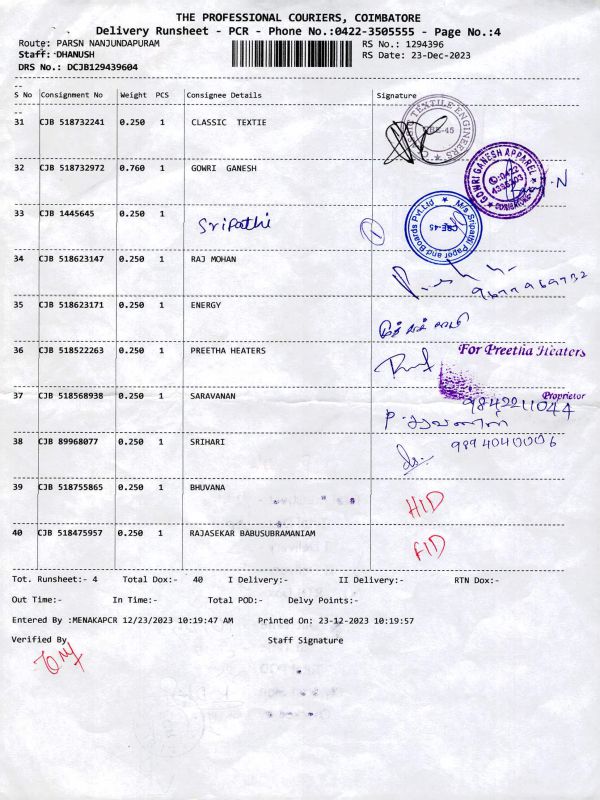 THE PROFESSIONAL COURIERS, COIMBATORE
Delivery Runsheet - PCR - Phone No.:0422-3505555 - Page No.:4
Route: PARSN NANJUNDAPURAM RS No.: 1294396
Staff: DHANUSH RS Date: 23-Dec-2023
DRS No.: DCJB129439604
S No Consignment No Weight PCS Consignee Details Signature
31 CJB 518732241 0.250 1 CLASSIC TEXTIE TEXTILE ENGINEERS CBE-45
32 CJB 518732972 0.760 1 GOWRI GANESH GOWRI GANESH APPAREL
33 CJB 1445645 0.250 1 Sripathi M/s Sripathi Paper and Boards Pvt Ltd CBE-45
34 CJB 518623147 0.250 1 RAJ MOHAN
35 CJB 518623171 0.250 1 ENERGY
36 CJB 518522263 0.250 1 PREETHA HEATERS For Preetha Heaters
Proprietor
37 CJB 518568938 0.250 1 SARAVANAN 9842211044
P. சரவணன்
38 CJB 89968077 0.250 1 SRIHARI 9894040006
39 CJB 518755865 0.250 1 BHUVANA HID
40 CJB 518475957 0.250 1 RAJASEKAR BABUSUBRAMANIAM FID
Tot. Runsheet:- 4 Total Dox:- 40 I Delivery:- II Delivery:- RTN Dox:-
Out Time:- In Time:- Total POD:- Delvy Points:-
Entered By :MENAKAPCR 12/23/2023 10:19:47 AM Printed On: 23-12-2023 10:19:57
Verified By Staff Signature